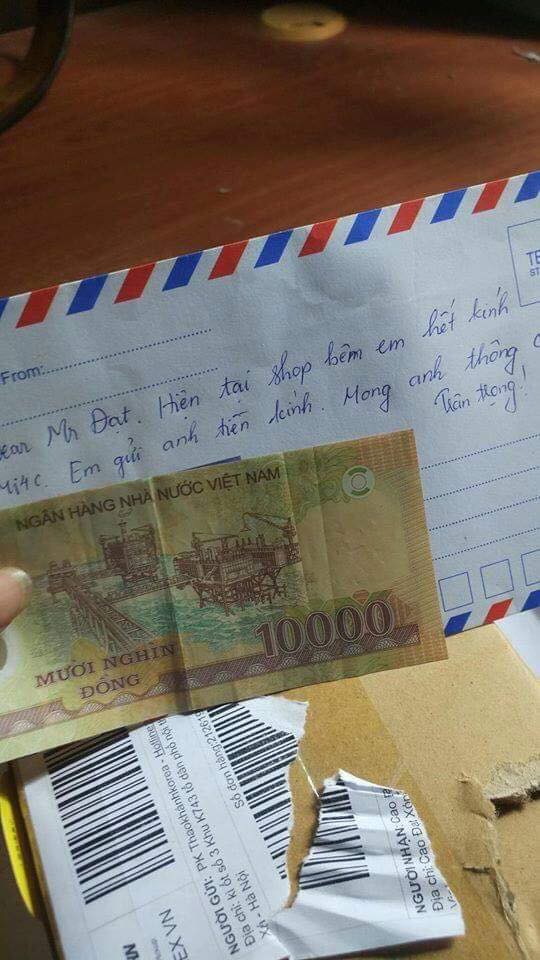 TE
ST
From:
ear Mr Đạt. Hiện tại shop bêm em hết kính
Mi4c. Em gửi anh tiền kính. Mong anh thông c
Trân trọng!
NGÂN HÀNG NHÀ NƯỚC VIỆT NAM
10000
MƯỜI NGHÌN
ĐỒNG
EX VN
NGƯỜI GỬI: PK Thaokhánhkorea - Hotline
Địa chỉ: kì ốt số 3 Khu K743 tổ dân phố nội t
Xá - Hà Nội
Số đơn hàng:212619
NGƯỜI NHẬN Cao
Địa chỉ: Cao Đài Xóm